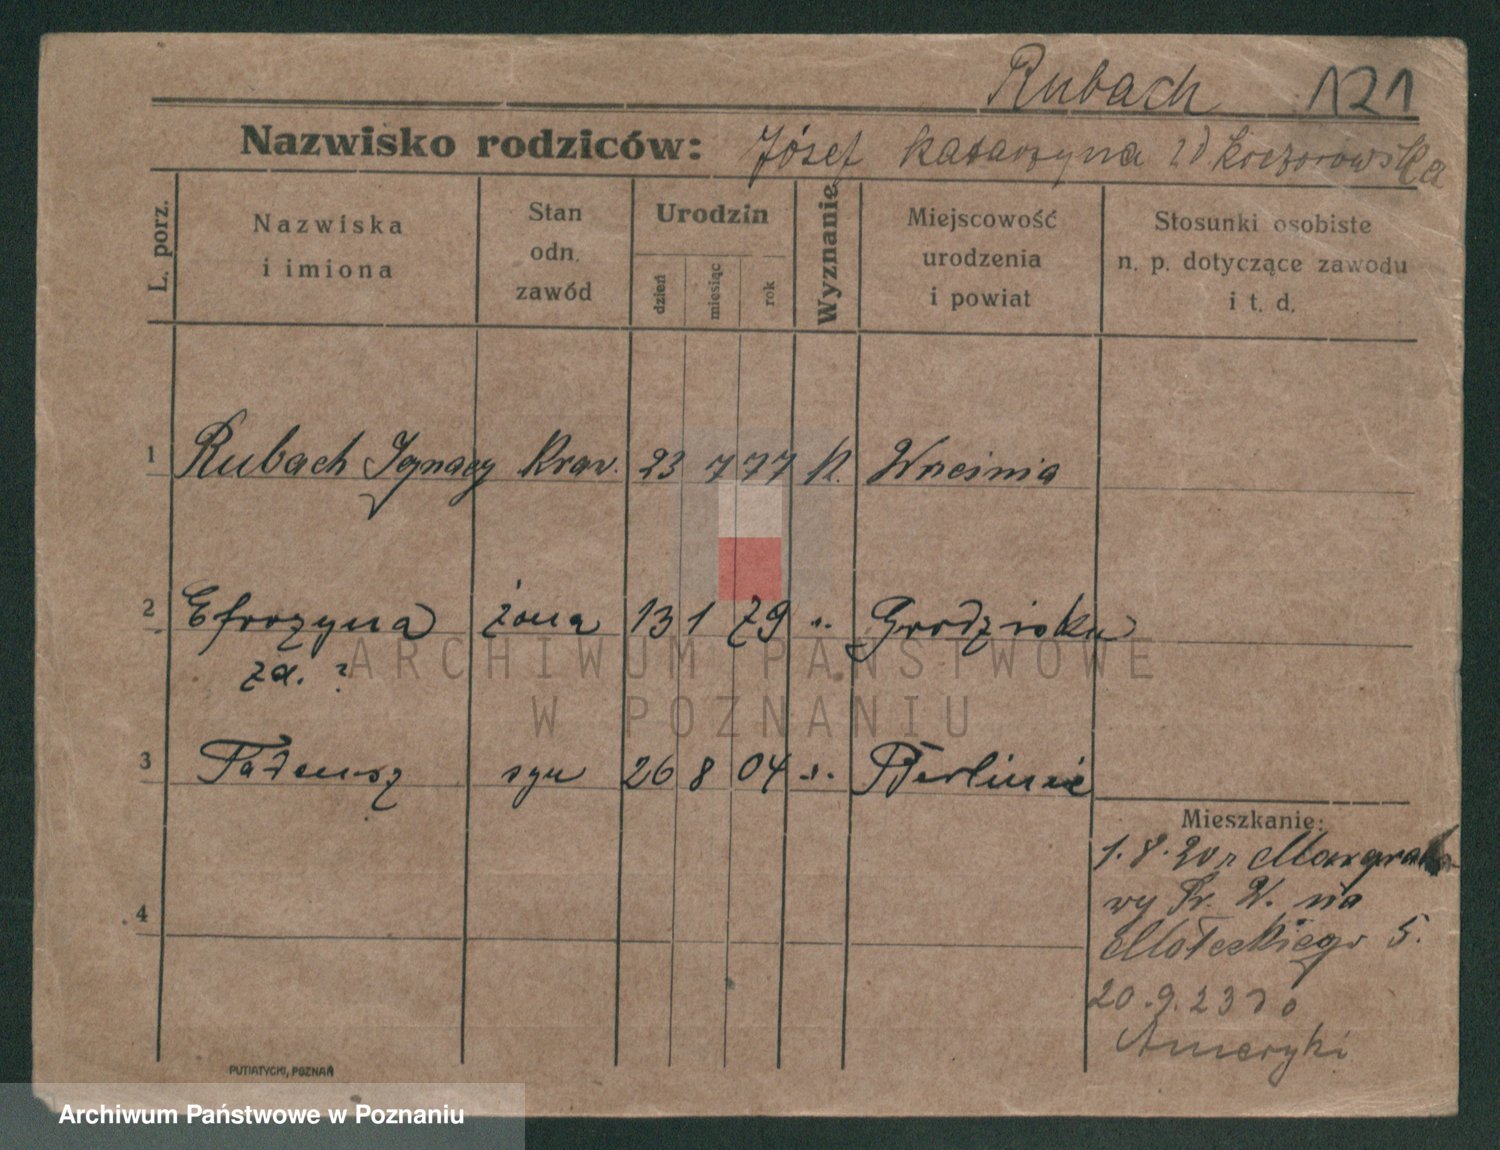 Rubach 121
Nazwisko rodziców: Józef Katarzyna zd. Koczorowska
L. porz.
Nazwiska
i imiona
Stan
odn.
zawód
Urodzin
dzień
miesiąc
rok
Wyznanie
Miejscowość
urodzenia
i powiat
Stosunki osobiste
n. p. dotyczące zawodu
i t. d.
1 Rubach Ignacy Kraw. 23 7 77 k. Września
2 Efrozyna żona 13 1 79 ". Grodzisku
zd. ?
3 Tadeusz syn 26 8 04 ". Berlinie
4
Mieszkanie:
1.8.20 r
wy Fr. W. na
Małeckiego 5.
20.9.23 do
Ameryki
PUTIATYCKI, POZNAŃ
ARCHIWUM PAŃSTWOWE
W POZNANIU
Archiwum Państwowe w Poznaniu